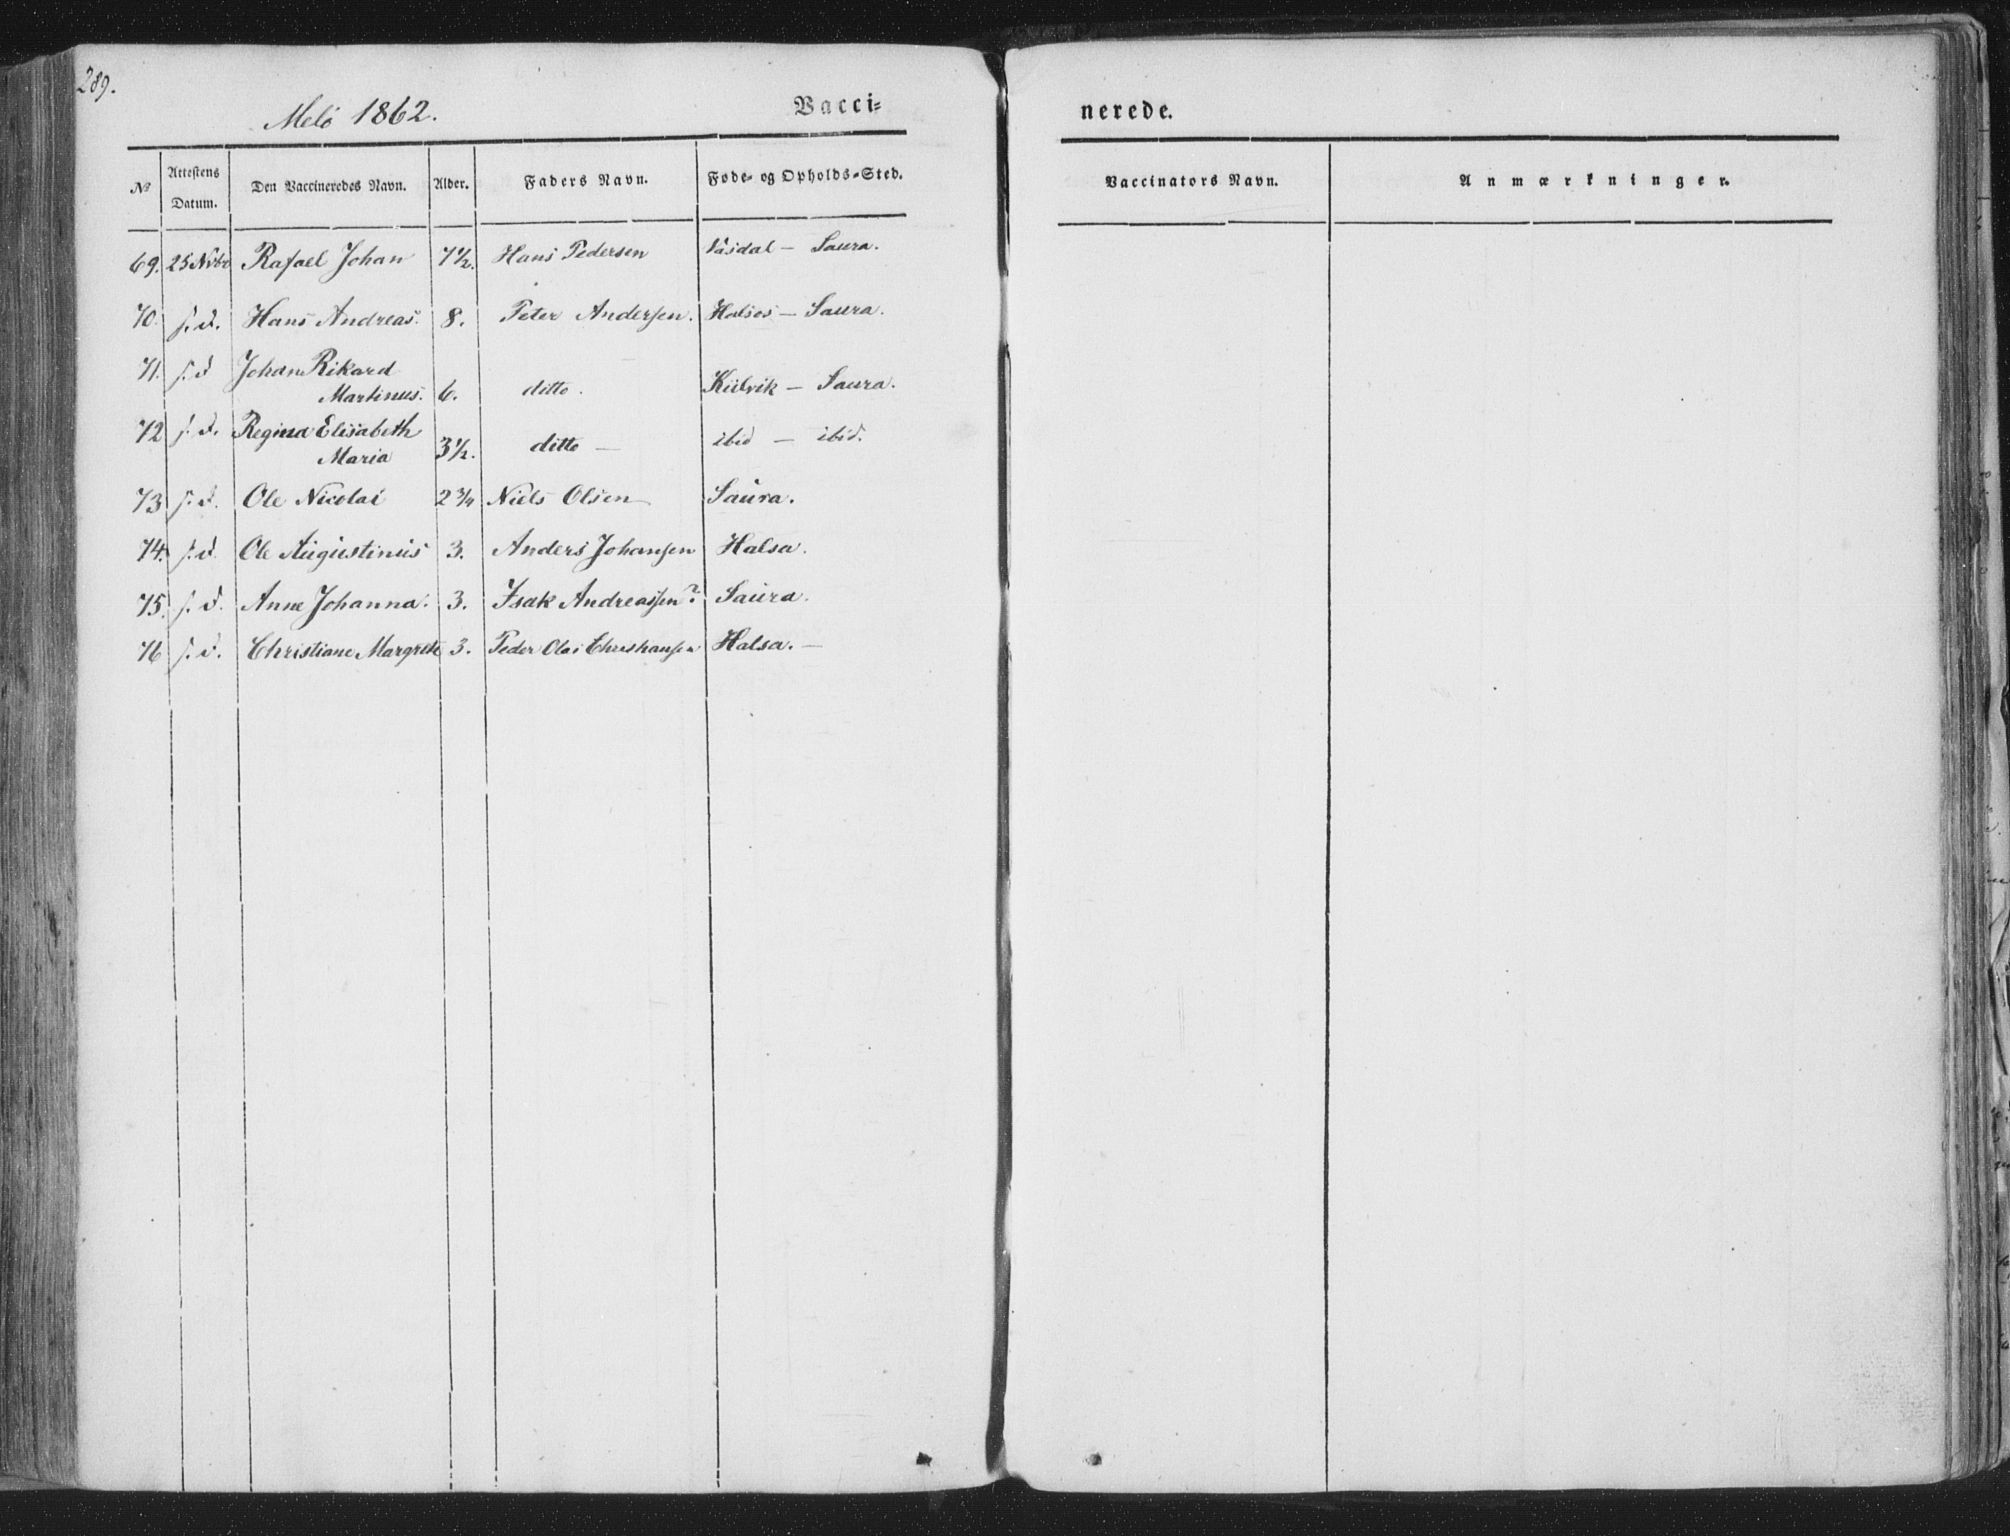 289.
Melö 1862.
Vacci=
nerede.
No Attestens Datum. Den Vaccineredes Navn. Alder. Faders Navn. Føde- og Opholds-Sted.
Vaccinators Navn. Anmærkninger.
69. 25 Nvbr Rafael Johan 7½. Hans Pedersen Våsdal – Saura.
70. s. d. Hans Andreas. 8. Peter Andersen. Halsos – Saura.
71. s. d Johan Rikard
Martinus. 6. ditto. Kiilvik – Saura.
72 s. d. Regina Elisabeth
Maria 3½. ditto – ibid – ibid.
73 s. d. Ole Nicolai 2¾ Niels Olsen – Saura.
74. s. d. Ole Augustinus 3. Anders Johansen Halsa.
75. s. d. Anne Johanna. 3. Isak Andreassen? Saura.
76 s. d. Christiane Margrete 3. Peder Olai Christiansen Halsa. –